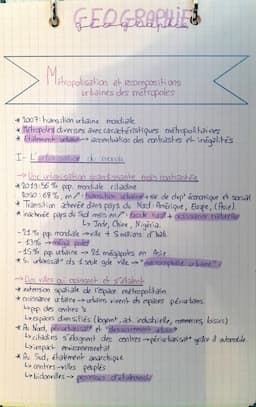 GEOGRAPHIE
Métropolisation et recompositions
urbaines des métropoles
* 2007: transition urbaine mondiale
* Métropoles diverses avec caractéristiques métropolitaines
* Étalement urbain → accentuation des contrastes et inégalités
I- L'urbanisation du monde
→ Une urbanisation grandissante mais contrastée
* 2019: 56% pop. mondiale citadine
2050: 68%, en/° transition urbaine + car de dvp° économique et social
* Transition achevée dans pays du Nord: Amérique, Europe, (Asie).
* inachevée pays du Sud mais en/° exode rural + croissance naturelle
↳ Inde, Chine, Nigéria.
- 21% pop mondiale → ville + 5 millions d'hab.
- 13% → mégapole
- 15% pop urbaine → 21 mégapoles en Asie
* Si urbanisat° ds 1 seule gde ville → "macrocéphalie urbaine"
→ Des villes qui croissent et s'étalent
* extension spatiale de l'espace métropolitain
* croissance urbaine → urbains vivent ds espaces périurbains.
↳ pop des centres ↘
↳ espaces diversifiés (logem^t, act. industrielle, commerces, loisirs)
* Au Nord, périurbanisat° et "desserrement urbain"
↳ citadins s'éloignent des centres → périurbanisat° grâce à automobile
↳ impact environnemental
* Au Sud, étalement anarchique
↳ centres-villes peuplés
↳ bidonvilles → processus d'étalement